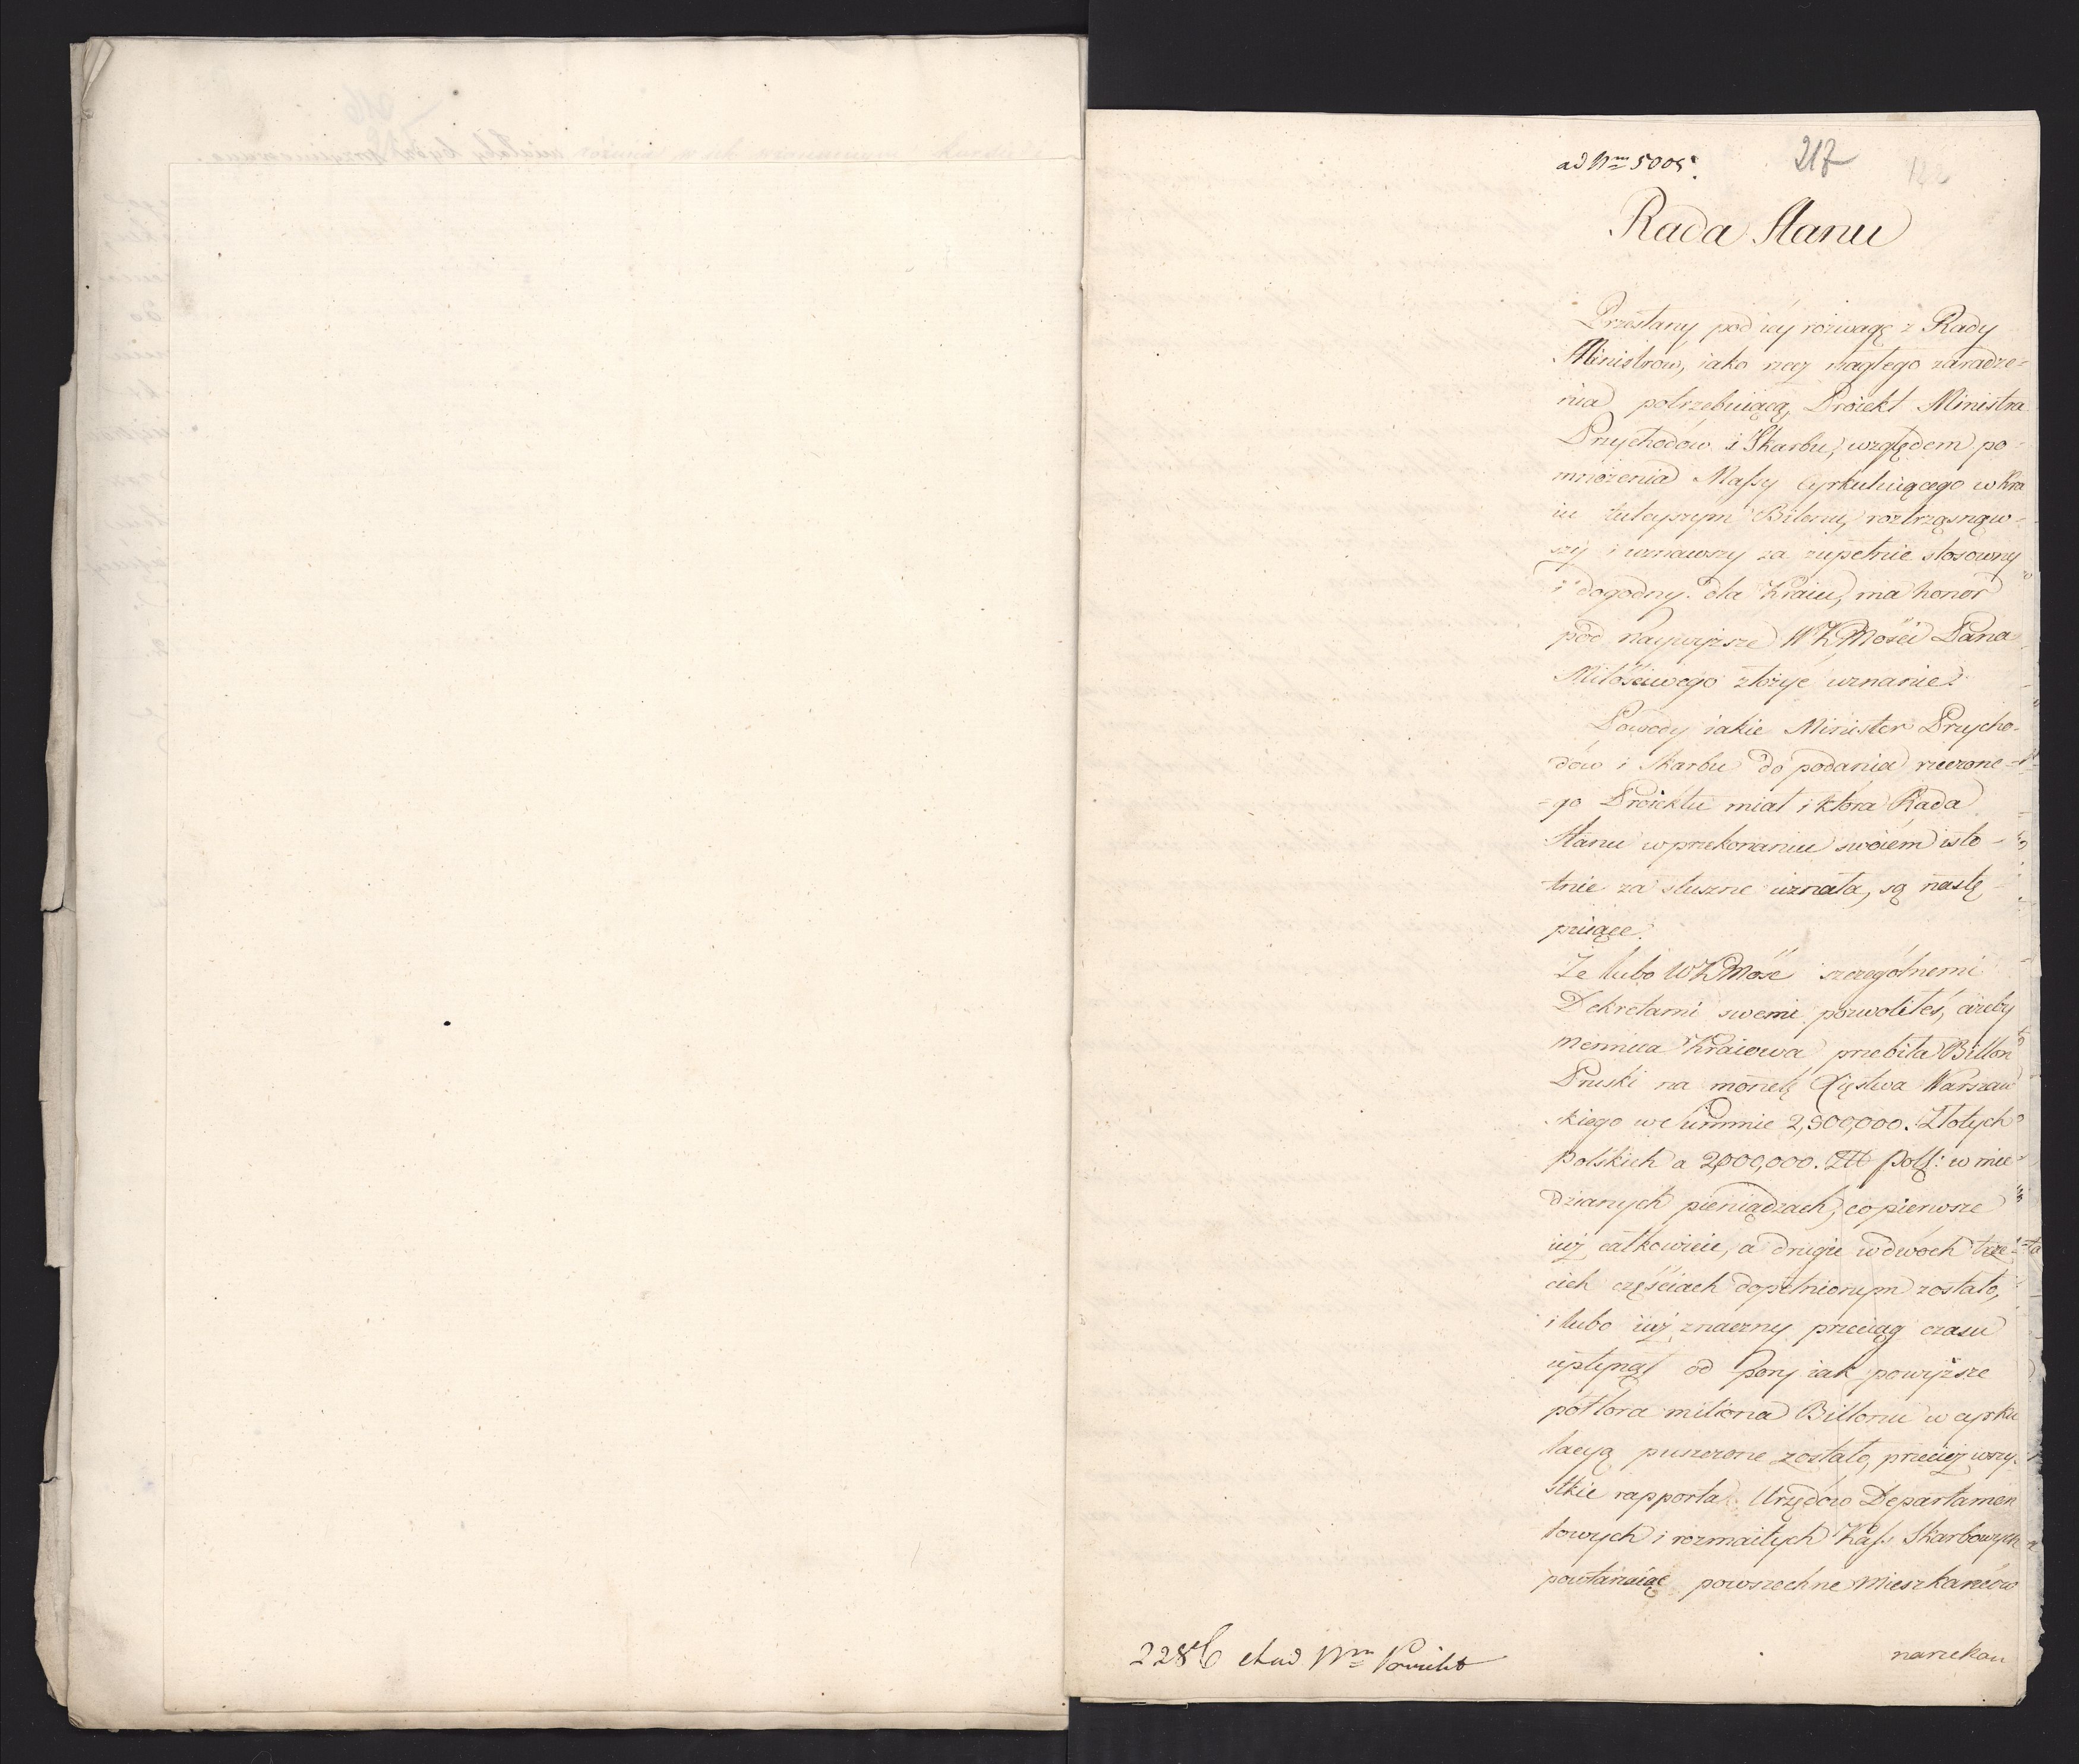 ad Nrum 5005.
217
122
Rada Stanu
Przesłany pod iey rozwagę z Rady
Ministrów, iako rzecz nagłego zaradze=
nia potrzebuiącą, Proiekt Ministra
Przychodów i Skarbu, względem po-
mnożenia Massy Cyrkuluiącego w Kra
iu tuteyszym Bilonu, roztrząsnąw-
szy i uznawszy za zupełnie stosowny
i dogodny dla Kraiu, ma honor
pod naywyższe WKMości Pana
Miłościwego złożyć uznanie.
Powody iakie Minister Przycho-
dów i Skarbu do podania rzeczone-
-go Proiektu miał i które Rada
Stanu w przekonaniu swoiém isto-
tnie za słuszne uznała, są nastę-
puiące.
Że lubo WKMość szczególnemi
Dekretami swemi pozwoliłeś, ażeby
mennica Kraiowa przebiła Billon
Pruski na monetę Xięstwa Warszaw
skiego w Summie 2,500,000. Złotych
Polskich a 2,000,000. Złł Pols: w mie
dzianych pieniądzach, co pierwsze
iuż całkowicie, a drugie w dwóch trze-
cich częściach dopełnionym zostało,
i lubo iuż znaczny przeciąg czasu
upłynął od Pory iak powyższe
półtora miliona Billonu w cyrku
lacyą puszczone zostało, przecież wszy-
stkie rapporta Urzędów Departamen
towych i rozmaitych Kass Skarbowych
powtarzaiąc powszechne mieszkańców
narzekan
2286 et ad Nrum